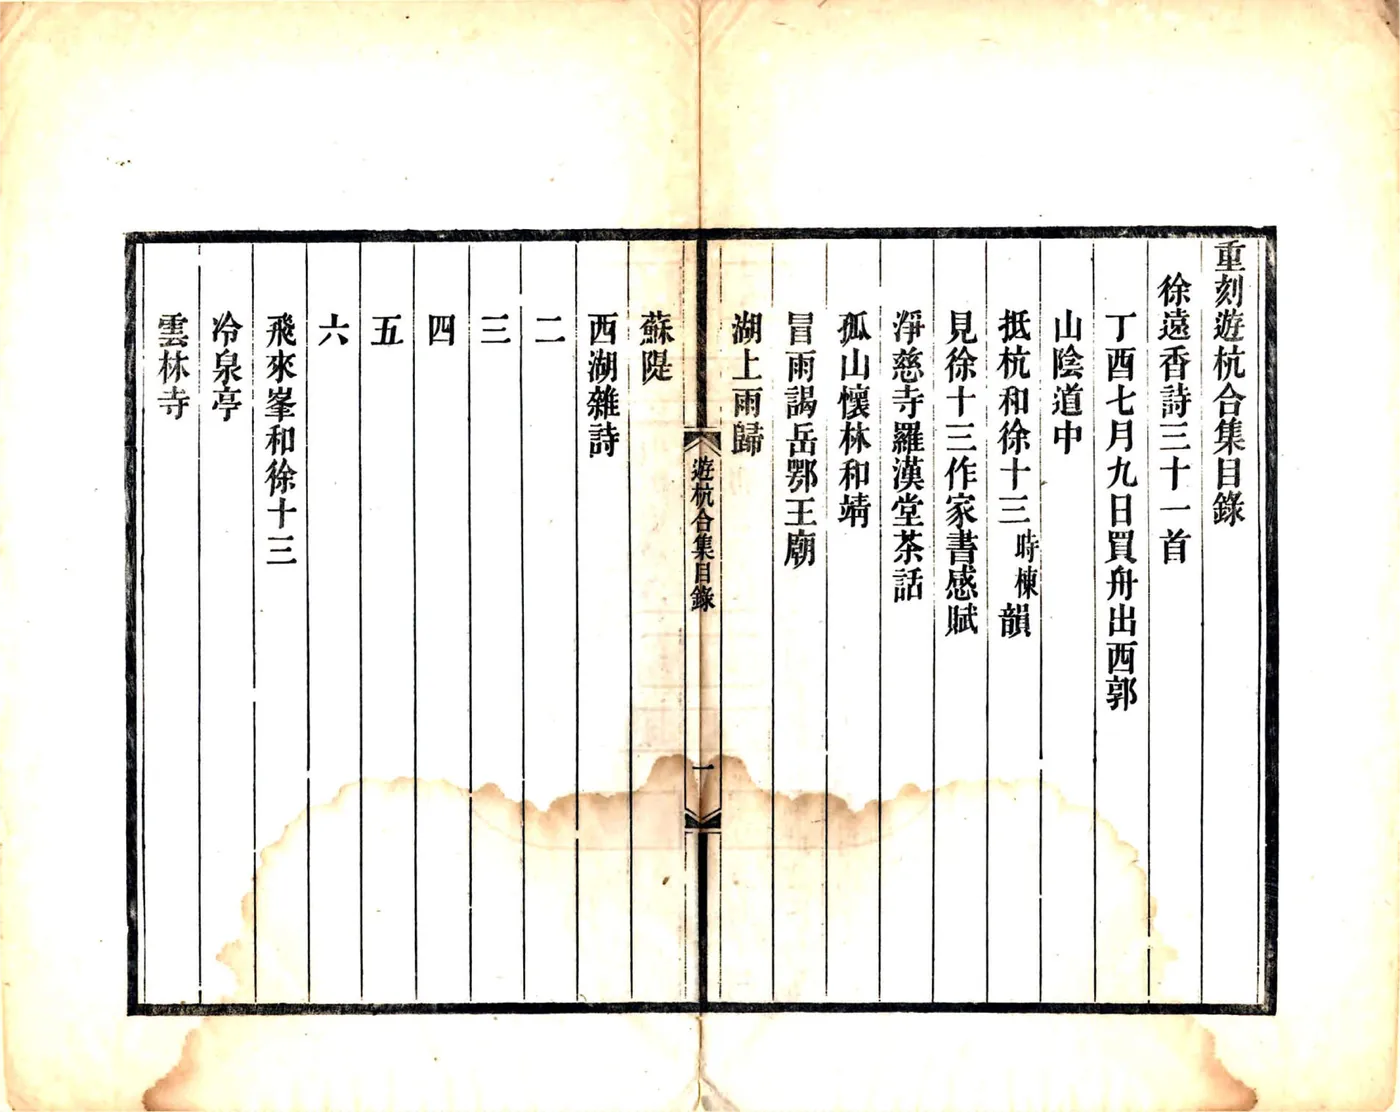 重刻遊杭合集目錄
徐遠香詩三十一首
丁酉七月九日買舟出西郭
山陰道中
抵杭和徐十三時棟韻
見徐十三作家書感賦
淨慈寺羅漢堂茶話
孤山懷林和靖
冒雨謁岳鄂王廟
湖上雨歸
遊杭合集目錄
一
蘇隄
西湖雜詩
二
三
四
五
六
飛來峯和徐十三
冷泉亭
雲林寺